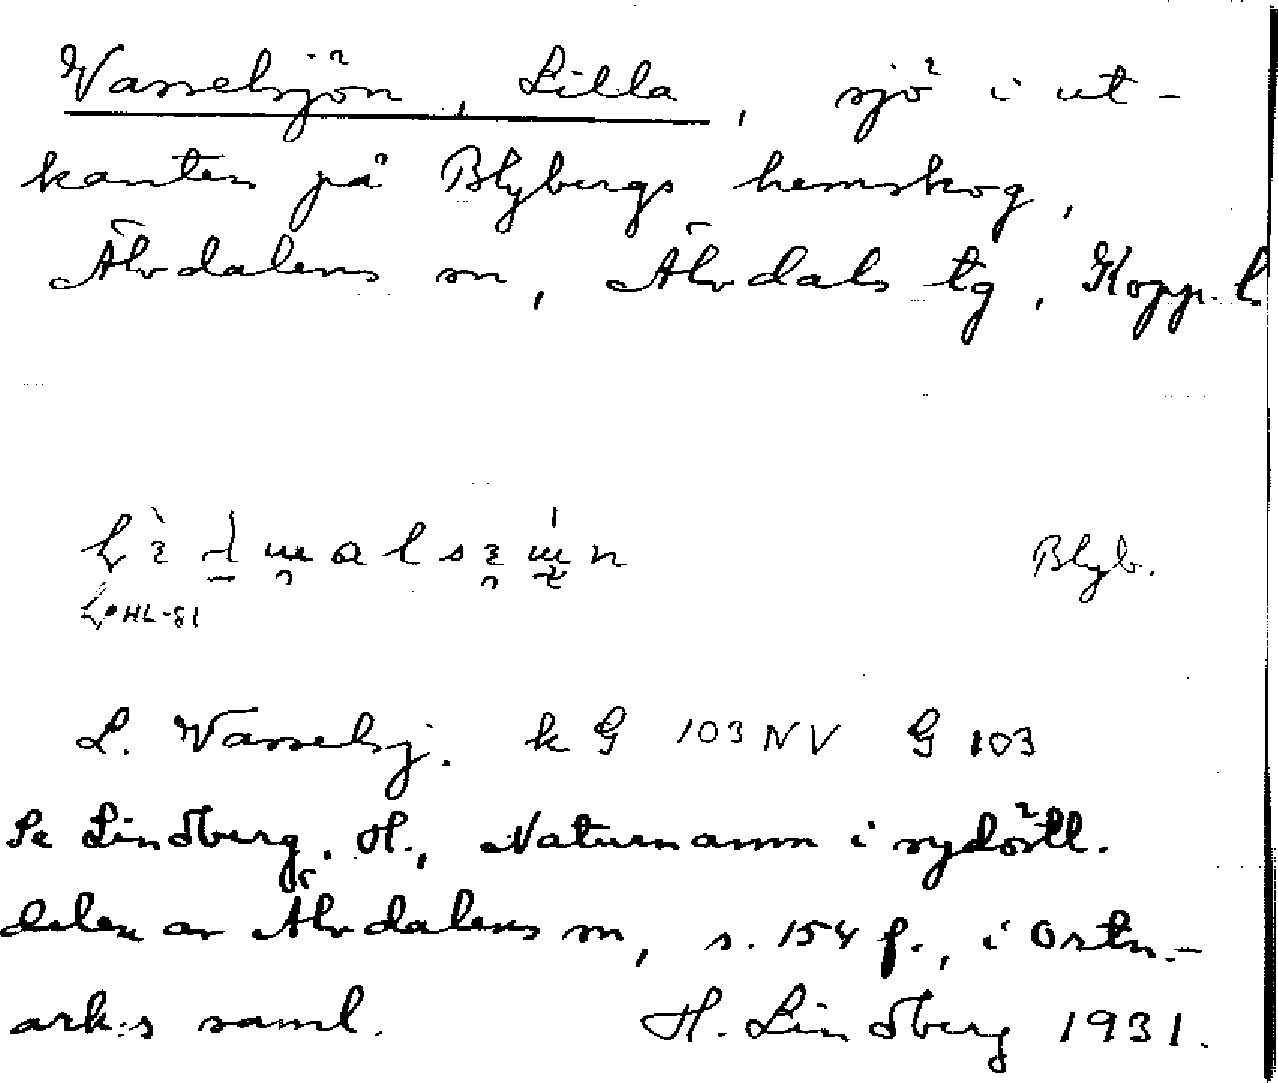 Vasselsjön, Lilla, sjö i ut-
kanten på Blybergs hemskog,
Älvdalens sn, Älvdals tg, Kopp. l.
Blyb.
L. Vasselsj. k G 103 NV G 103
Se Lindberg, H., Naturnamn i sydöstl.
delen av Älvdalens sn, s. 154 f., i Ortn.-
ark:s saml. H. Lindberg 1931.